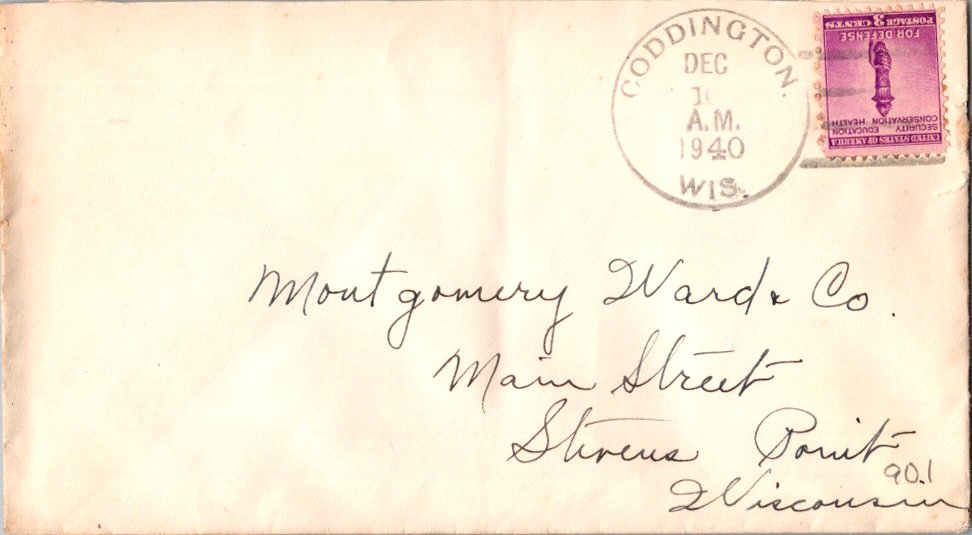 CODDINGTON.
DEC
A.M.
1940
WIS.
UNITED STATES OF AMERICA
SECURITY EDUCATION
CONSERVATION HEALTH
FOR DEFENSE
POSTAGE 3 CENTS
Montgomery Ward & Co.
Main Street
Stevens Point
90.1
Wisconsin